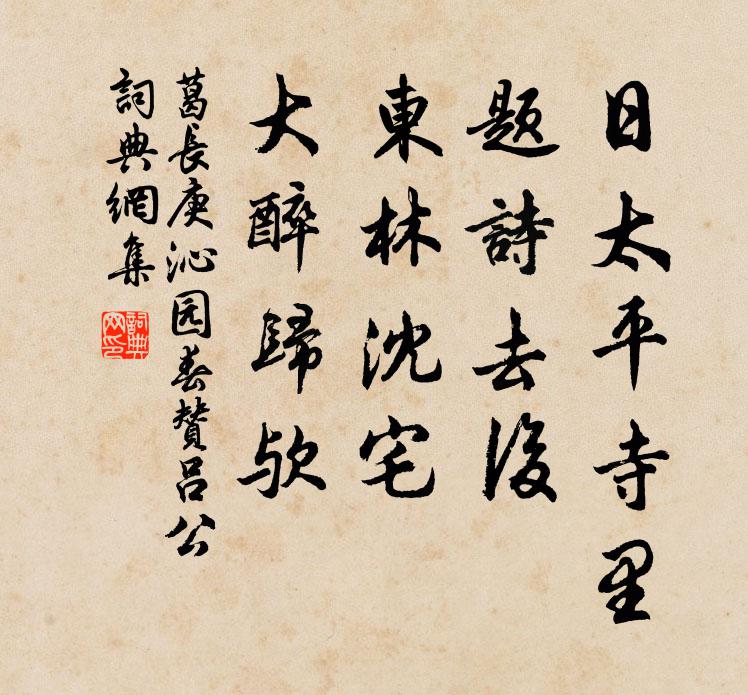 日太平寺里
题詩去後
東林沈宅
大醉歸欤
葛長庚沁园春赞吕公
詞典網集
詞典网印